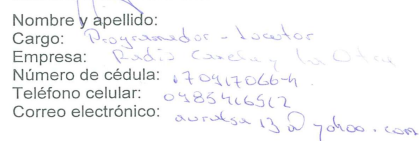 Nombre y apellido:
Cargo: Programador - Locutor
Empresa: Radio
Número de cédula: 170417066-4
Teléfono celular: 0985416512
Correo electrónico: @ yahoo.com